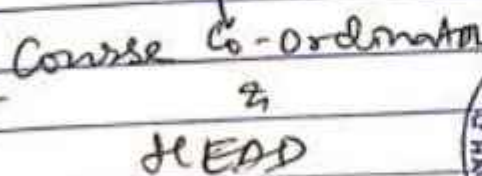 Course Co-ordinator
&
HEAD